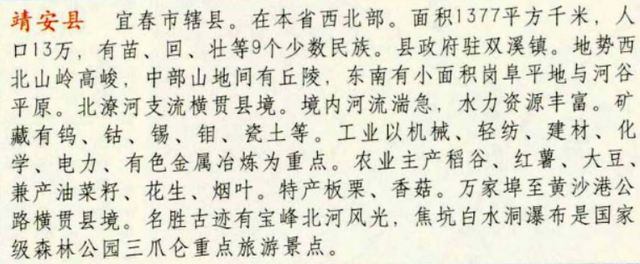 靖安县 宜春市辖县。在本省西北部。面积1377平方千米,人
口13万,有苗、回、壮等9个少数民族。县政府驻双溪镇。地势西
北山岭高峻,中部山地间有丘陵,东南有小面积岗阜平地与河谷
平原。北潦河支流横贯县境。境内河流湍急,水力资源丰富。矿
藏有钨、钴、锡、钼、瓷土等。工业以机械、轻纺、建材、化
学、电力、有色金属冶炼为重点。农业主产稻谷、红薯、大豆、
兼产油菜籽、花生、烟叶。特产板栗、香菇。万家埠至黄沙港公
路横贯县境。名胜古迹有宝峰北河风光,焦坑白水洞瀑布是国家
级森林公园三爪仑重点旅游景点。